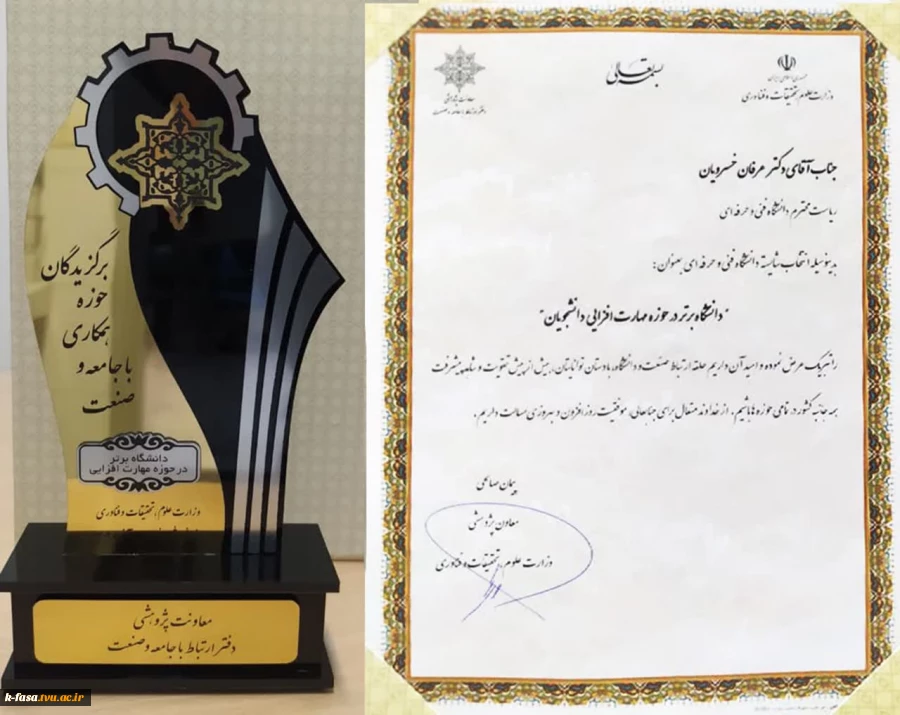 برگزیدگان
حوزه
همکاری
با جامعه و
صنعت
دانشگاه برتر
در حوزه مهارت افزایی
وزارت علوم، تحقیقات و فناوری
معاونت پژوهشی
دفتر ارتباط با جامعه و صنعت
k-fasa.tvu.ac.ir
بسمه تعالی
جمهوری اسلامی ایران
وزارت علوم، تحقیقات و فناوری
معاونت پژوهشی
دفتر ارتباط با جامعه و صنعت
جناب آقای دکتر عرفان خسرویان
ریاست محترم دانشگاه فنی و حرفه ای
بدینوسیله انتخاب شایسته دانشگاه فنی و حرفه ای بعنوان:
"دانشگاه برتر در حوزه مهارت افزایی دانشجویان"
را تبریک عرض نموده و امید آن داریم حلقه ارتباط صنعت و دانشگاه، با دستان توانایتان، بیش از پیش تقویت و شاهد پیشرفت
همه جانبه کشور در تمامی حوزه ها باشیم. از خداوند متعال برای جنابعالی، موفقیت روز افزون و بهروزی مسالت داریم.
پیمان صالحی
معاون پژوهشی
وزارت علوم، تحقیقات و فناوری